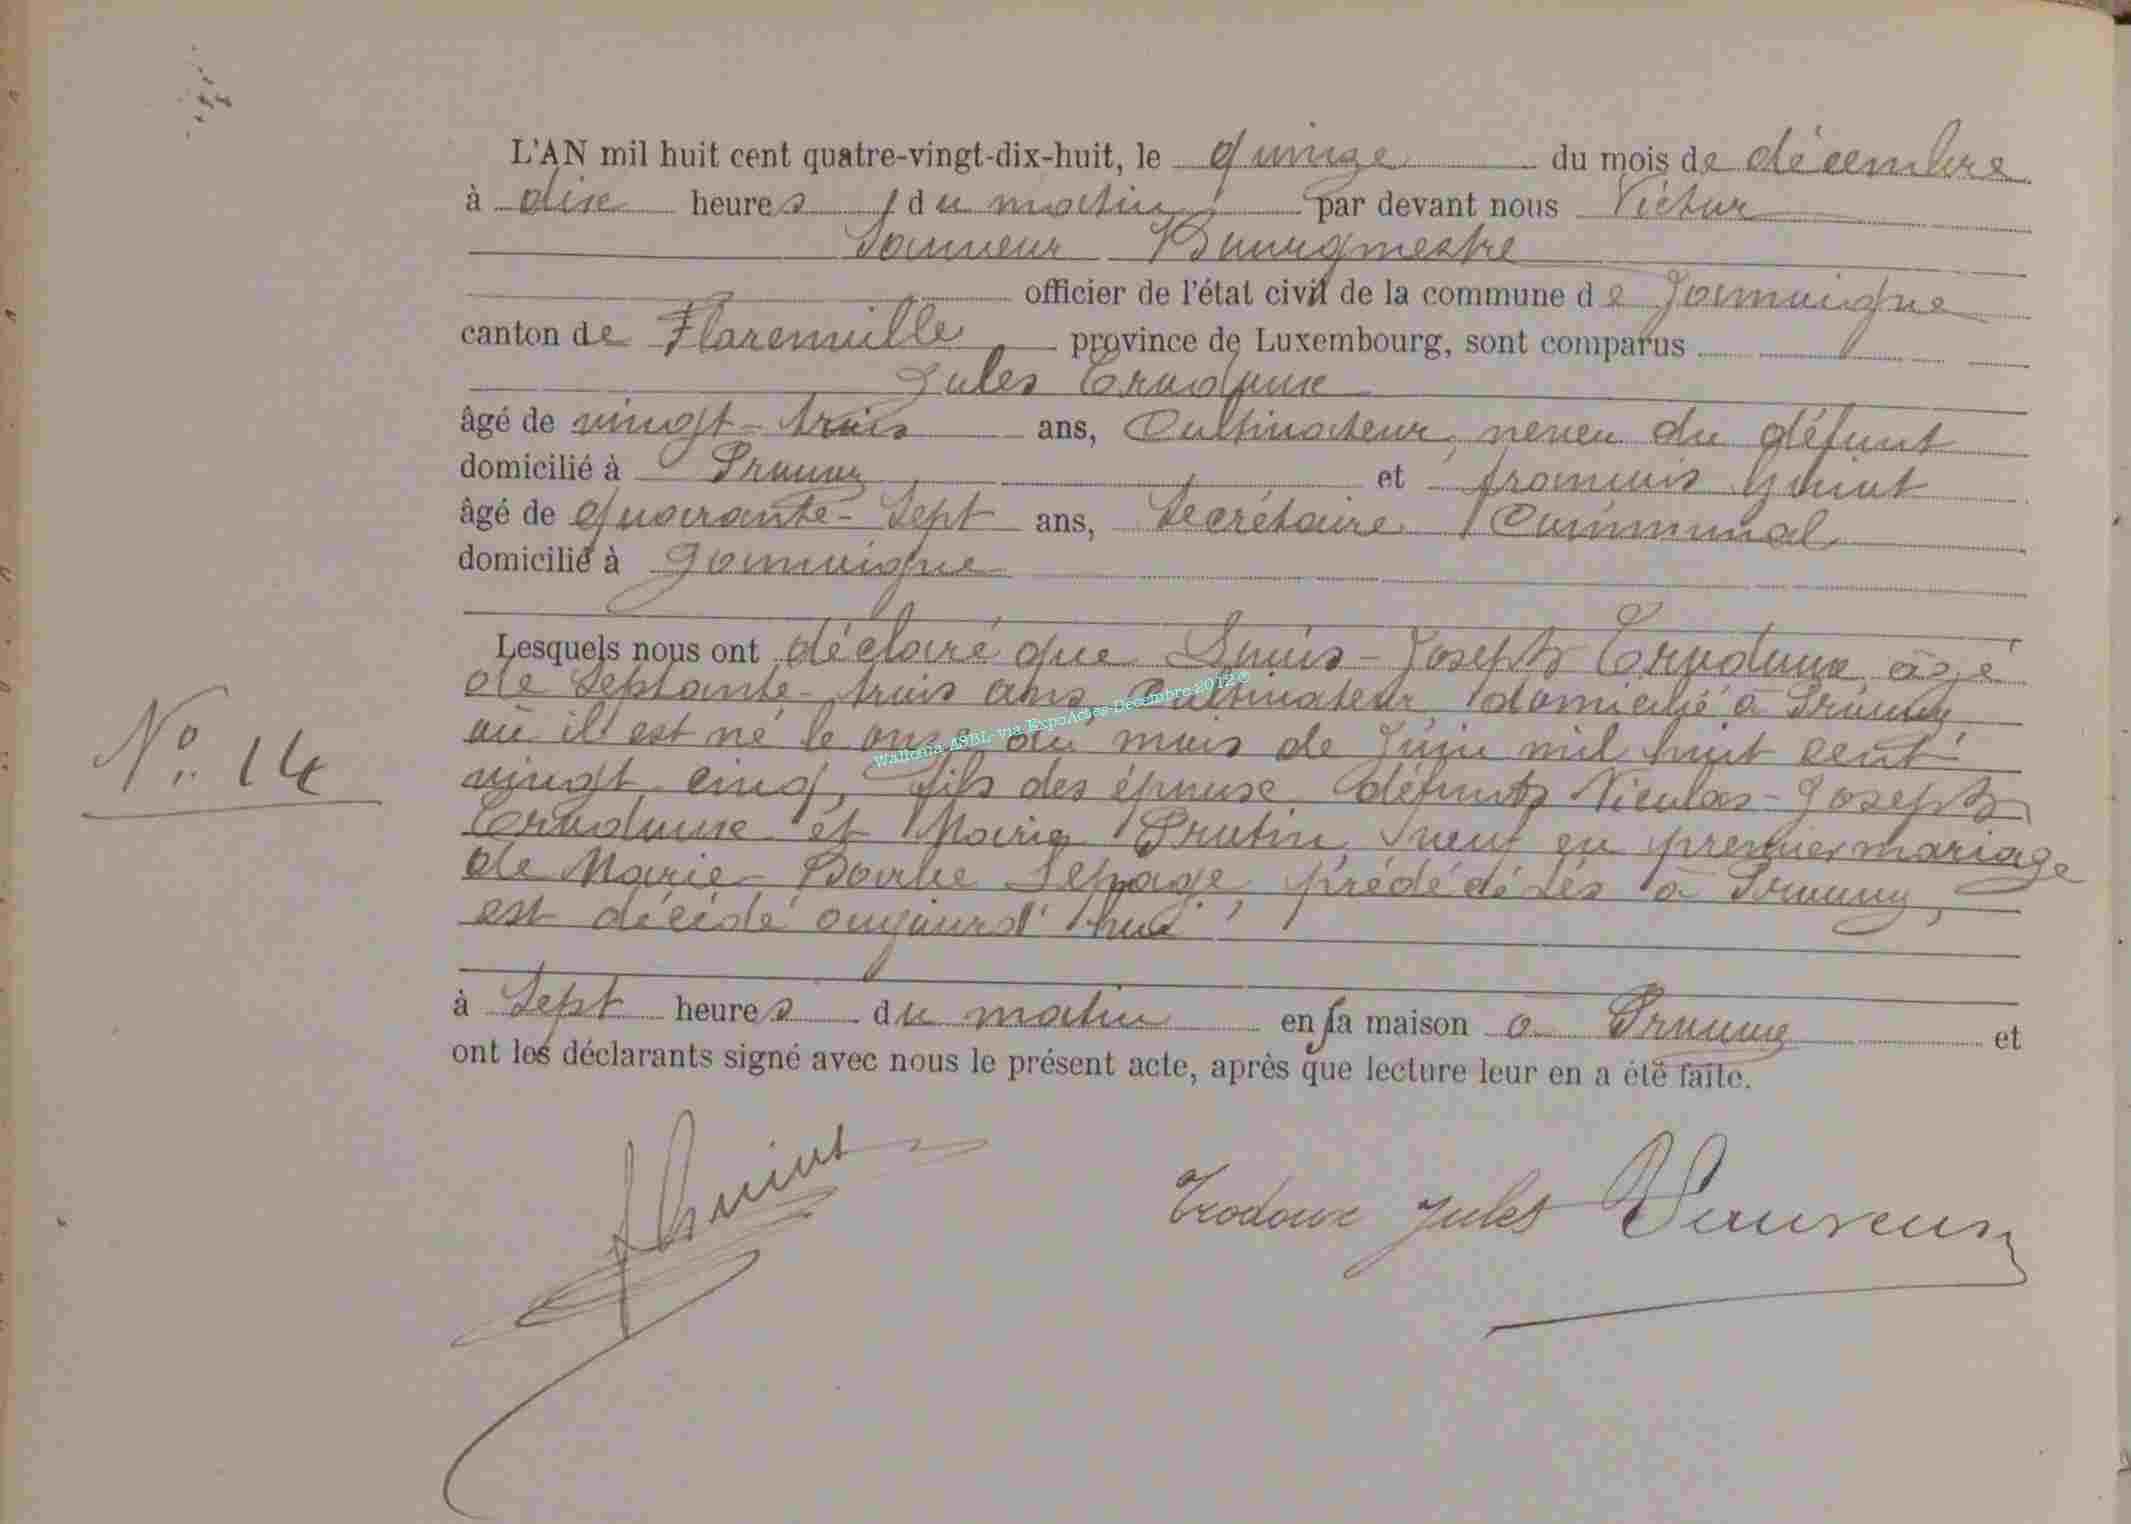 L'AN mil huit cent quatre-vingt-dix-huit, le quinze du mois de décembre
à dix heures du matin par devant nous Victor
Sauveur Bourgmestre
officier de l'état civil de la commune de Jamoigne
canton de Florenville province de Luxembourg, sont comparus
Jules Trodoux
âgé de vingt-trois ans, Cultivateur, neveu du défunt
domicilié à Prouvy et françois Guiot
âgé de quarante-sept ans, Secrétaire Communal
domicilié à Jamoigne
Lesquels nous ont déclaré que Louis-Joseph Trodoux, âgé
de Septante-trois ans, Cultivateur, domicilié à Prouvy
où il est né le onze du mois de Juin mil huit cent
vingt cinq, fils des époux défunts Nicolas-Joseph
Trodoux et Marie Protin, veuf en premier mariage
de Marie-Barbe Lepage, prédécédés à Prouvy,
est décédé aujourd'hui
à Sept heures du matin en sa maison à Prouvy et
ont les déclarants signé avec nous le présent acte, après que lecture leur en a été faite.
No. 14
Wallonia ASBL via ExpoActes Décembre 2012©
Guiot
Trodoux Jules VSauveur